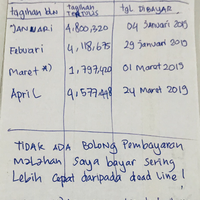 tagihan bln tagihan tgl DIBAYAR
JANUARI 4,800,320 04 Januari 2019
Febuari 4,118,675 29 Januari 2019
Maret *) 1,797,420 01 Maret 2019
April 4,577,448 24 Maret 2019
TIDAK ADA BOLONG Pembayaran
malahan saya bayar sering
Lebih Cepat daripada dead line!